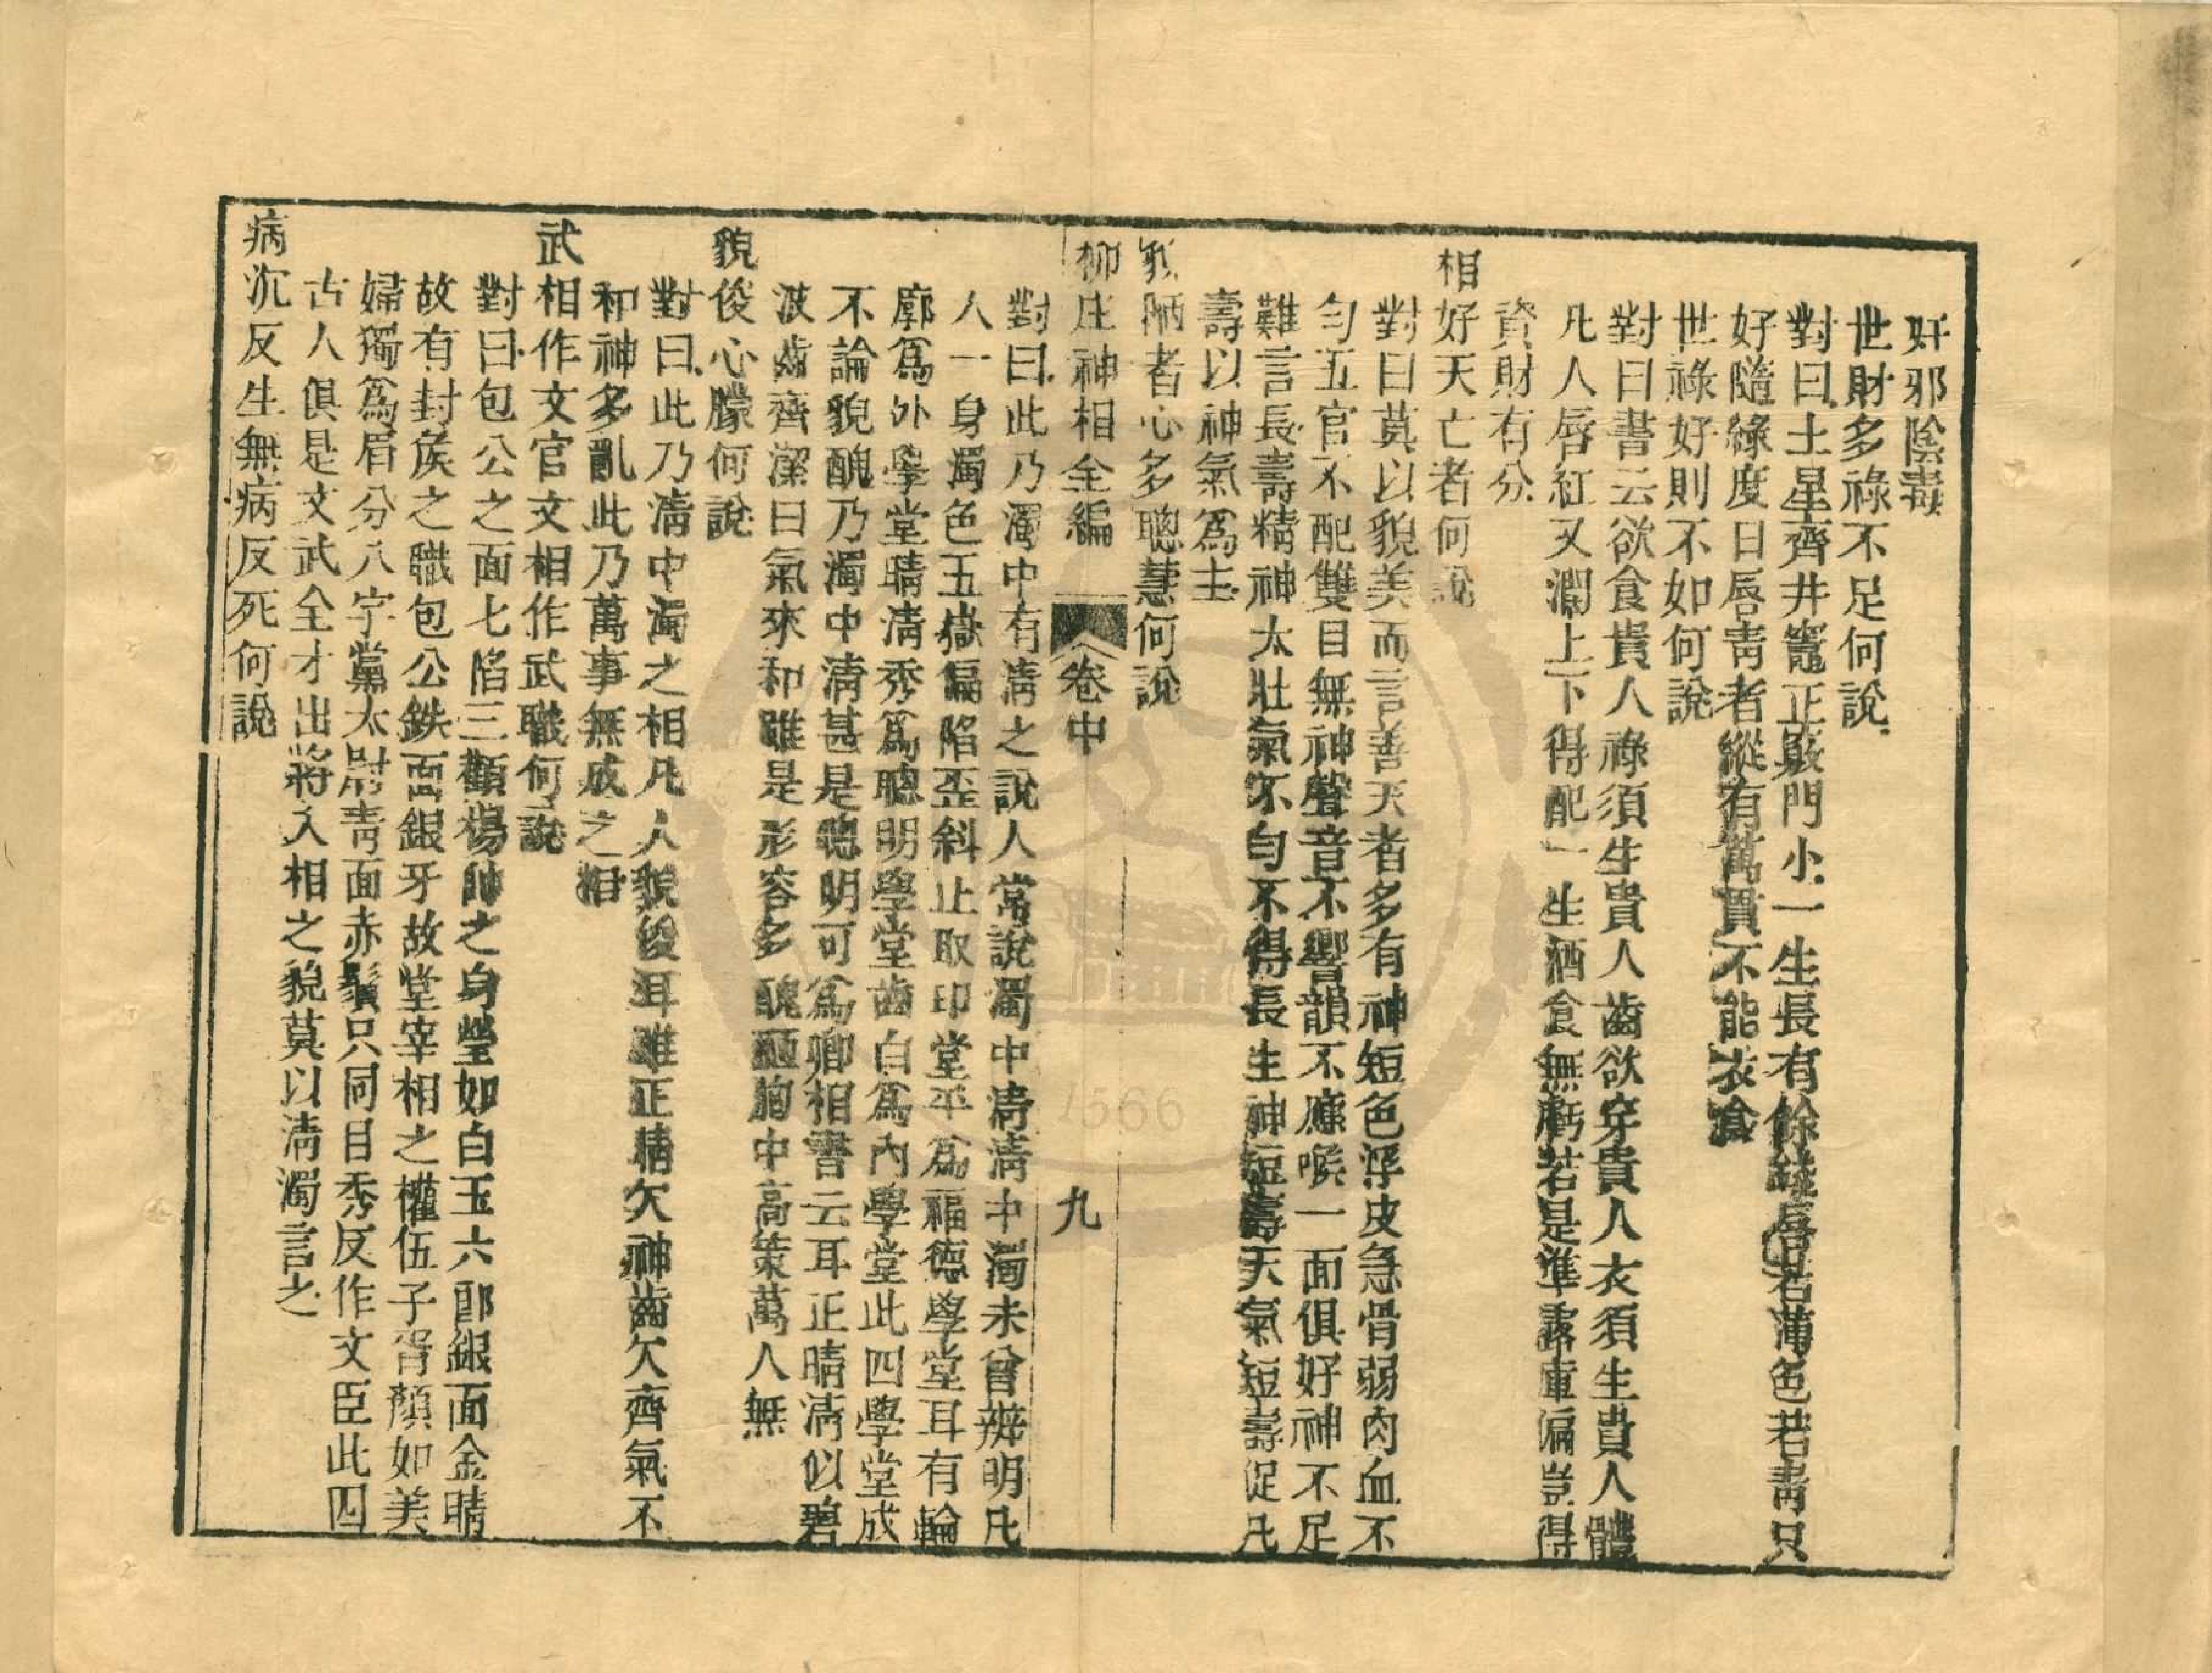 奸邪陰毒
世財多祿不足何說
對曰土星齊井竈正竅門小一生長有餘錢唇若薄色若青只
好隨緣度日唇青者縱有萬貫不能衣食
世祿好則不如何說
對曰書云欲食貴人祿須生貴人齒欲穿貴人衣須生貴人體
凡人唇紅又潤上下得配一生酒食無虧若是準露庫偏豈得
資財有分
相好夭亡者何說
對曰莫以貌美而言善夭者多有神短色浮皮急骨弱肉血不
勻五官不配雙目無神聲音不響韻不應喉一面俱好神不足
難言長壽精神太壯氣不勻不得長生神短壽夭氣短壽促凡
壽以神氣為主
貌陋者心多聰慧何說
柳庄神相全編 卷中 九
對曰此乃濁中有清之說人常說濁中清清中濁未曾辨明凡
人一身濁色五嶽偏陷歪斜止取印堂平為福德學堂耳有輪
廓爲外學堂睛清秀爲聰明學堂齒白爲內學堂此四學堂成
不論貌醜乃濁中清甚是聰明可爲卿相書云耳正睛清似碧
波齒齊潔曰氣來和雖是形容多醜陋胸中高策萬人無
貌俊心朦何說
對曰此乃清中濁之相凡人貌俊耳雖正睛欠神齒欠齊氣不
和神多亂此乃萬事無成之相
武相作文官文相作武職何說
對曰包公之面七陷三顴楊帥之身瑩如白玉六郎銀面金睛
故有封侯之職包公鉄面銀牙故堂宰相之權伍子胥顏如美
婦獨爲眉分八字黨太尉青面赤鬚只同目秀反作文臣此四
古人俱是文武全才出將入相之貌莫以清濁言之
病沉反生無病反死何說